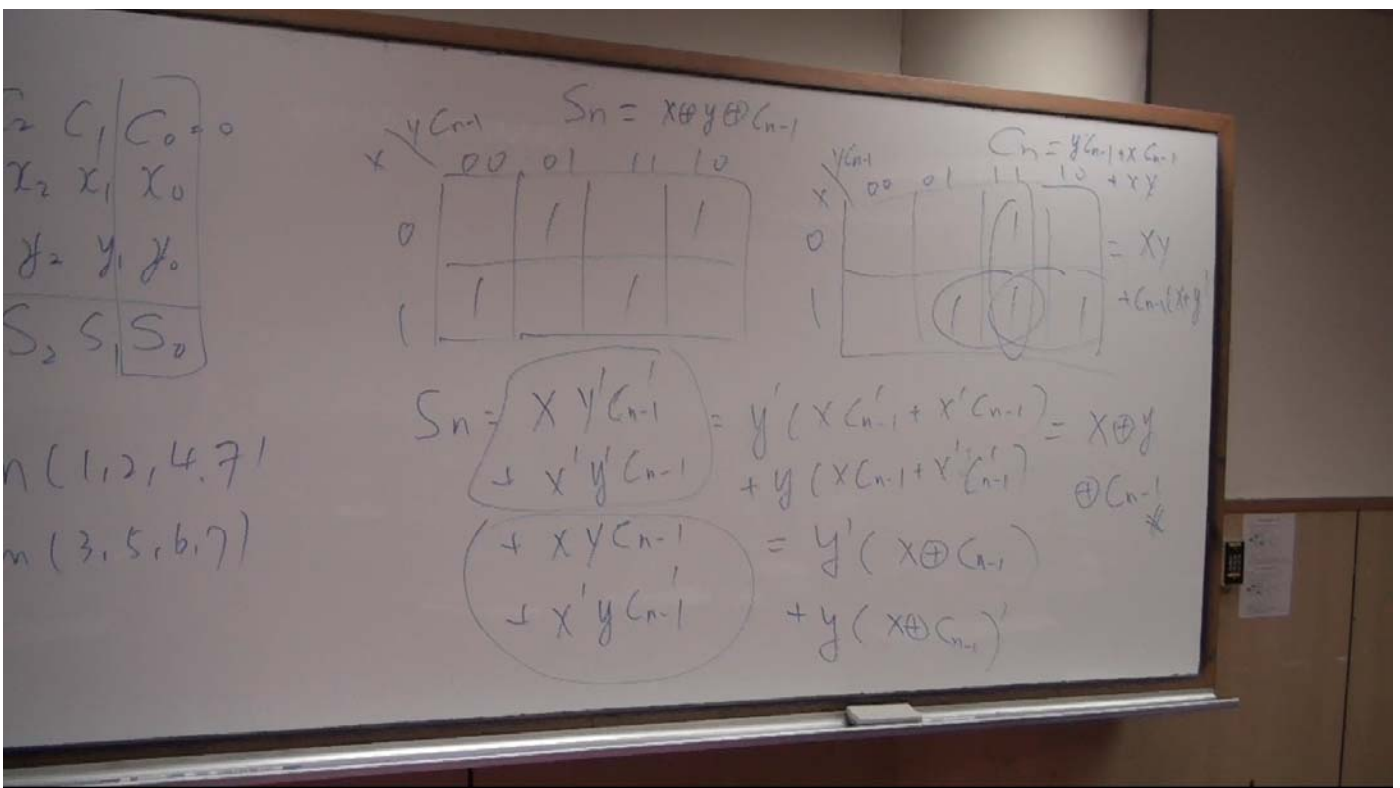 C₂ C₁ C₀ = 0
x₂ x₁ x₀
y₂ y₁ y₀
S₂ S₁ S₀
(1,2,4,7)
m(3,5,6,7)
Sn = X⊕y⊕Cn-1
X \ yCn-1
00 01 11 10
0 1 1
1 1 1
Cn = yCn-1 + X Cn-1
+ XY
X \ yCn-1
00 01 11 10
0 1
1 1 1 1
= XY
+ Cn-1(X+y)
Sn = X Y'Cn-1' = y'(X Cn-1' + X'Cn-1) = X⊕y
+ X'y'Cn-1 + y(XCn-1 + X'Cn-1') ⊕Cn-1
+ XYCn-1 = y'(X⊕Cn-1)
+ X'yCn-1' + y(X⊕Cn-1)'